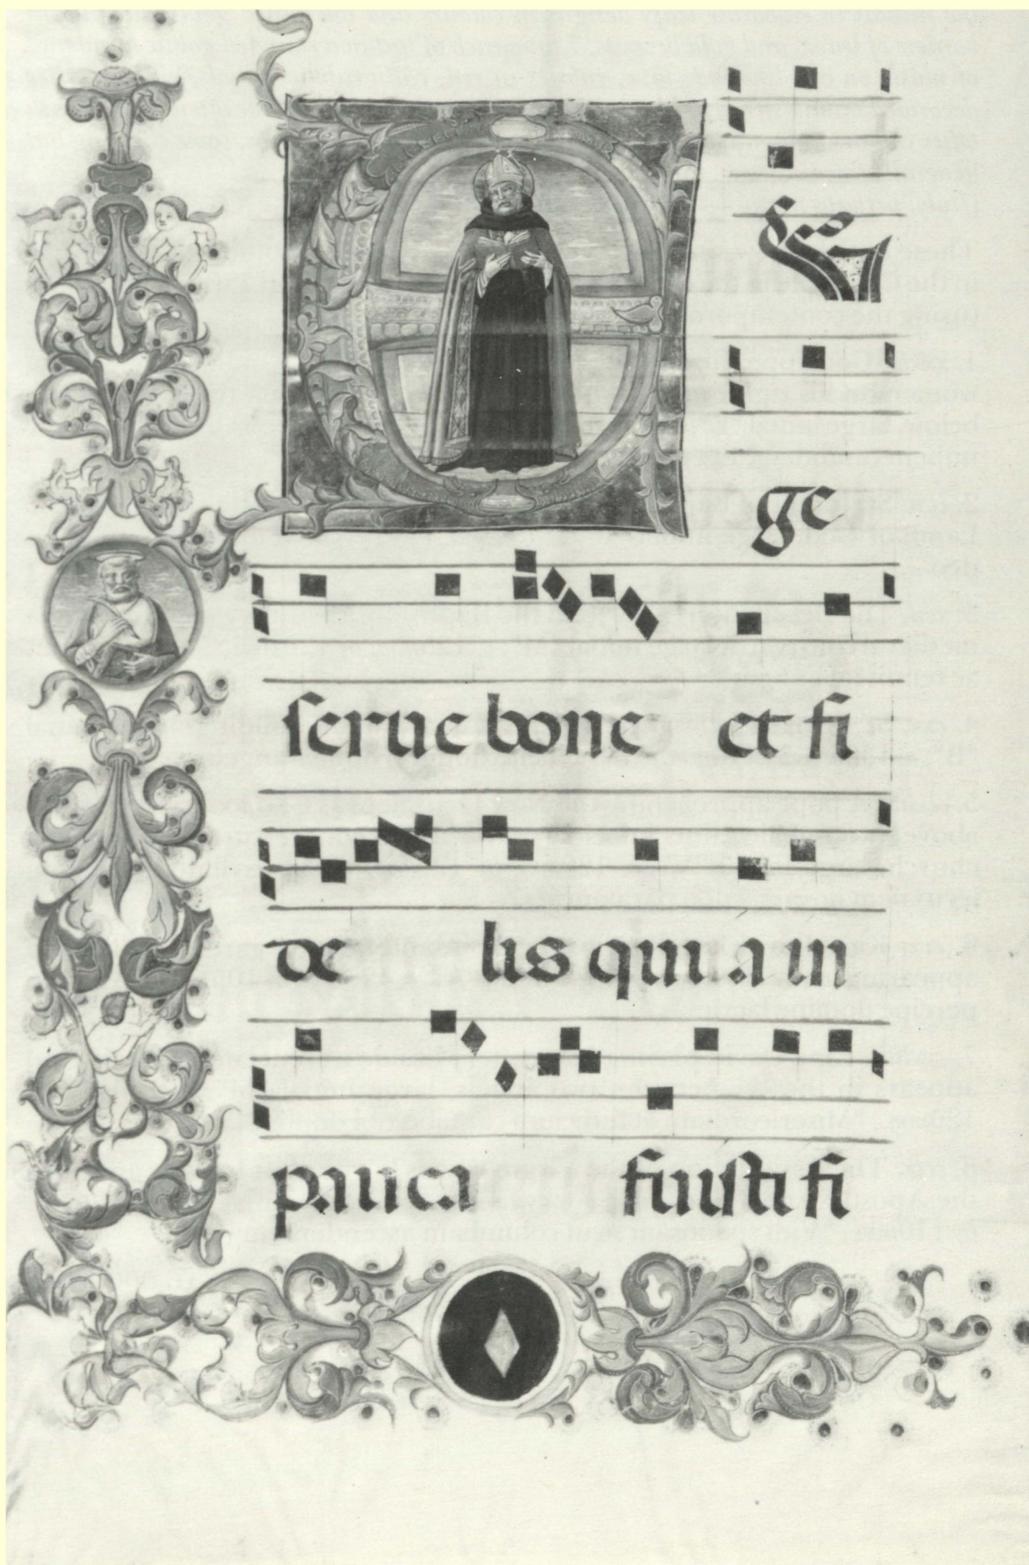 EU
ge
ſerue bone et fi
de lis quia in
pauca fuiſti fi